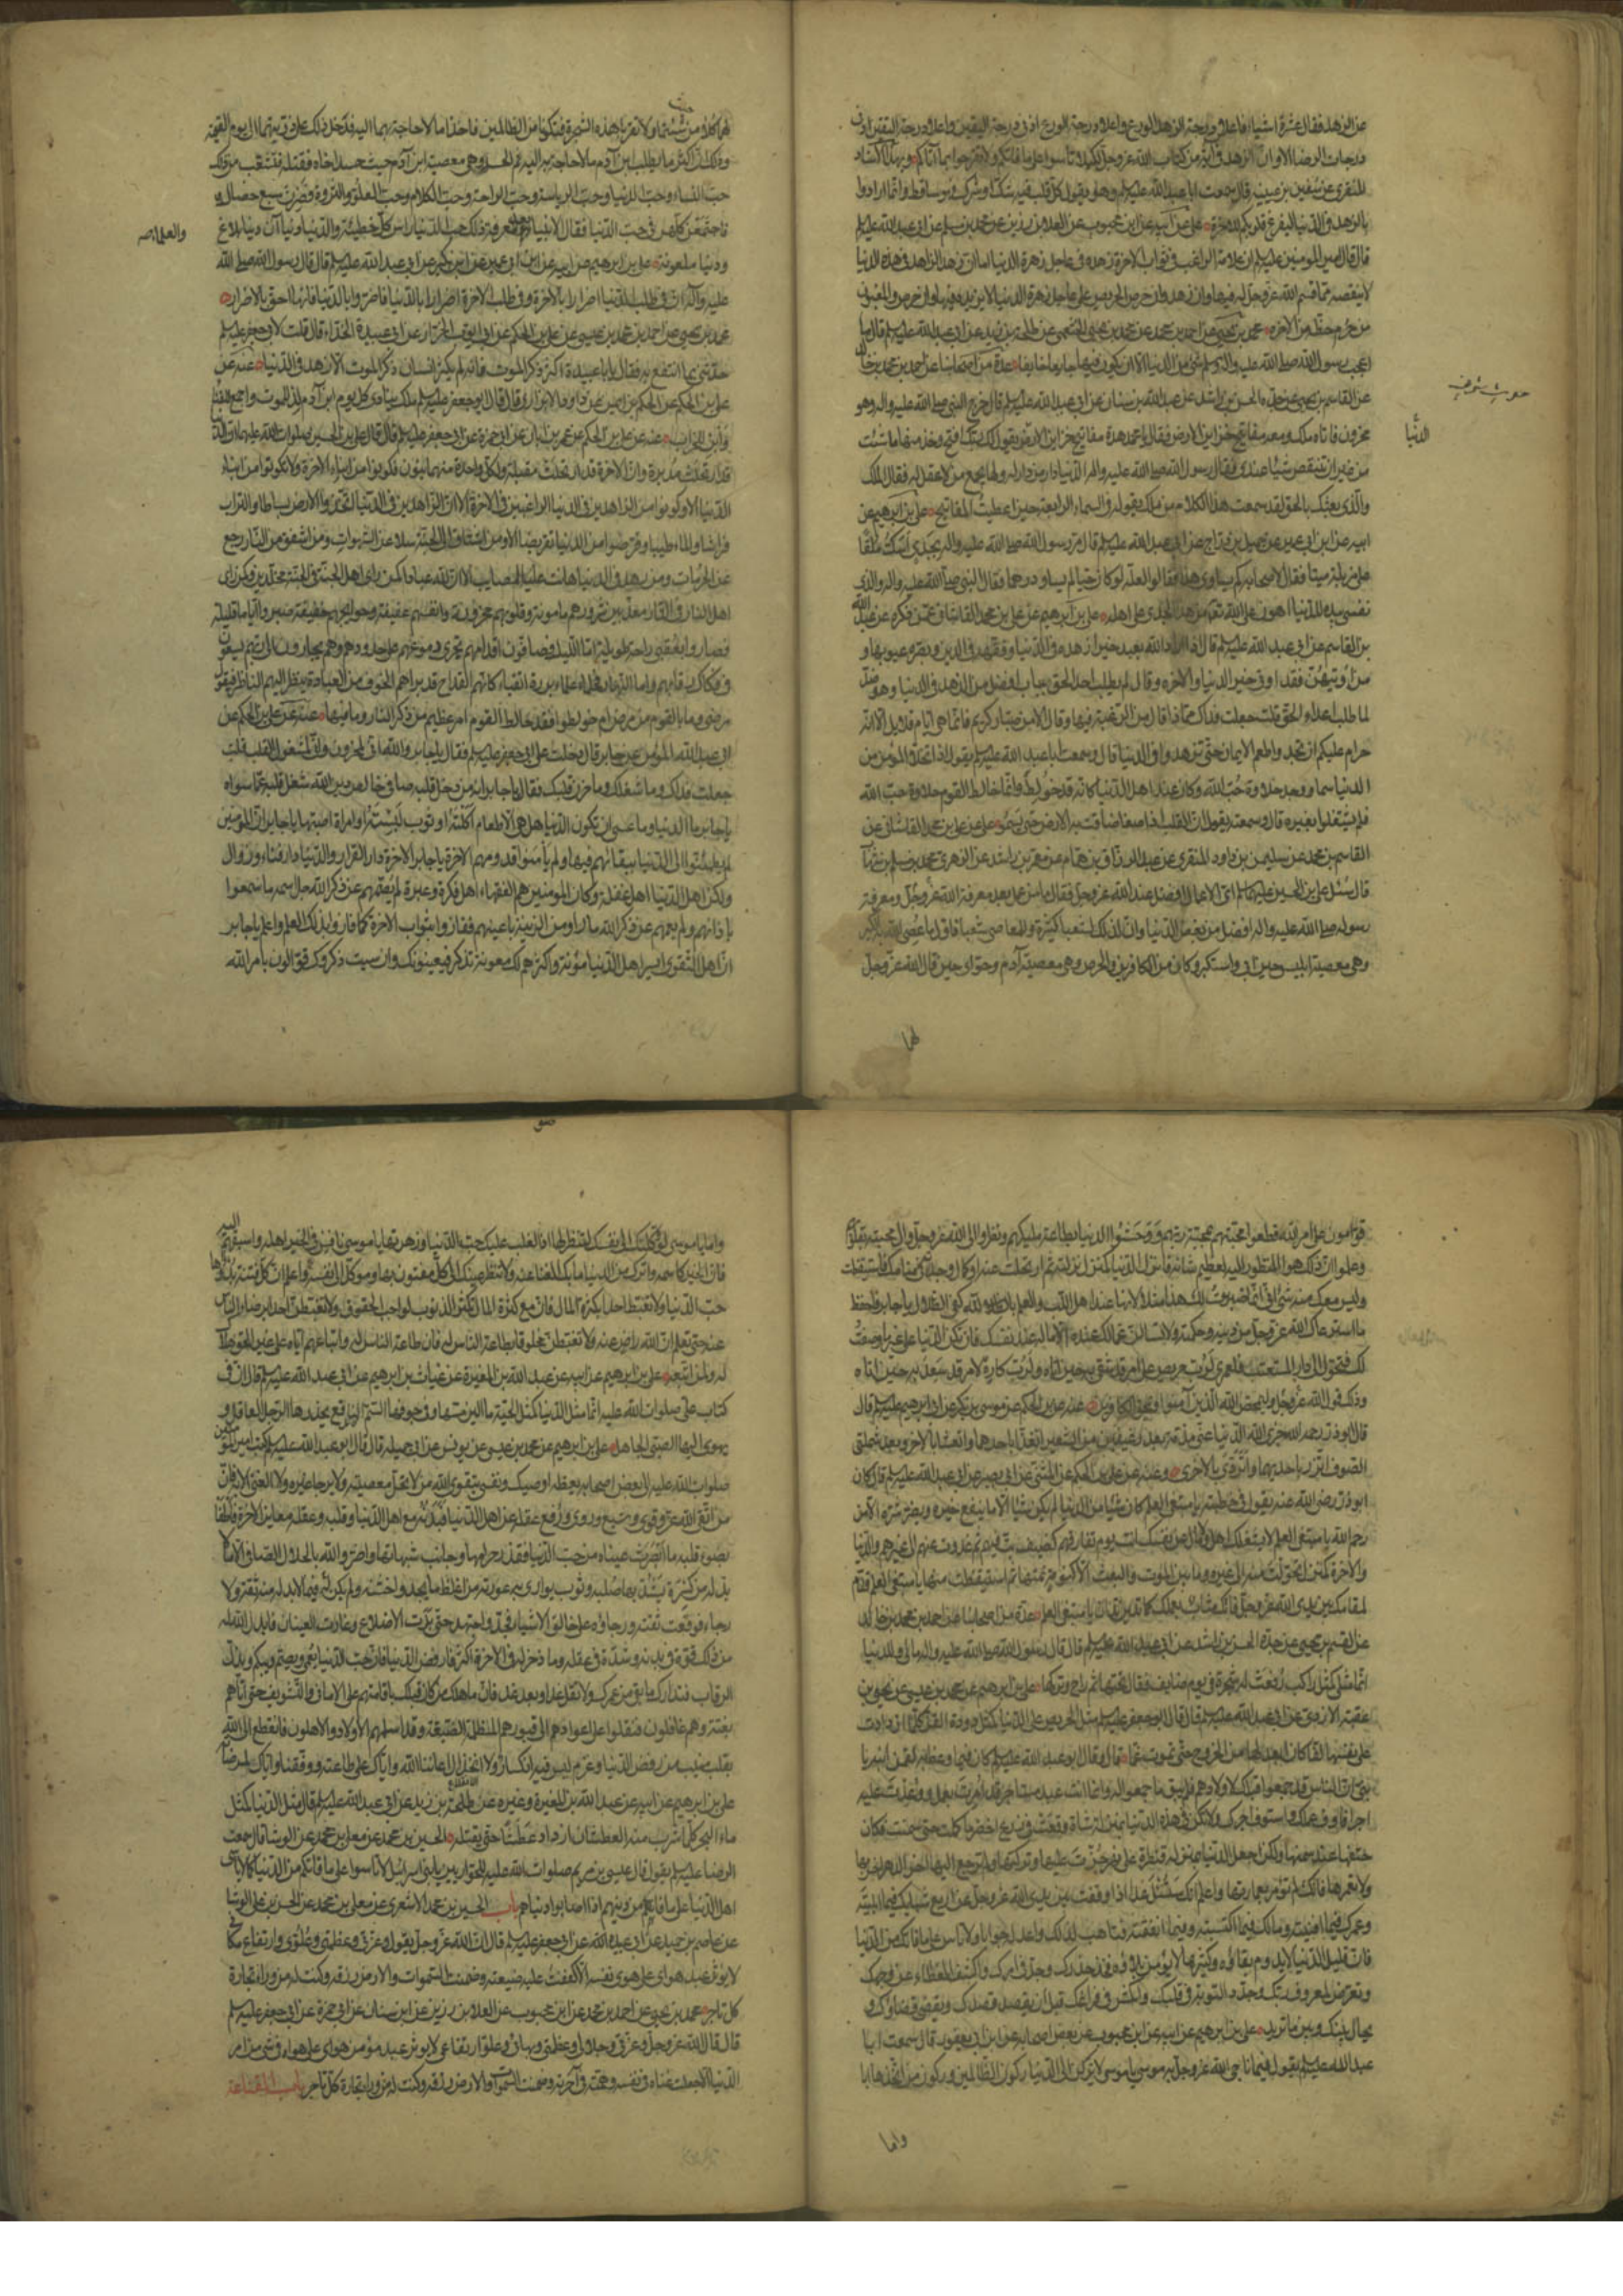 عن الزهد فقال عشرة اشياء فاعلا درجة الزهد ادنى درجة الورع واعلا درجة الورع ادنى درجة اليقين واعلا درجة اليقين ادنى
درجات الرضا الا وان الزهد في اية من كتاب الله عز وجل لكيلا تأسوا على ما فاتكم ولا تفرحوا بما آتاكم وبهذا الاسناد
للمنقري عن سفين بن عيينه قال سمعت ابا عبد الله عليه السلم وهو يقول كل قلب فيه شك او شرك فهو ساقط وانما ارادوا
بالزهد في الدنيا ليفرغ قلوبكم للاخرة علي عن ابيه عن ابن محبوب عن العلا بن رزين عن محمد بن مسلم عن ابي عبد الله عليه السلم
قال قال امير المومنين عليه السلم ان علامة الراغب في ثواب الاخرة زهده في عاجل زهرة الدنيا اما ان زهد الزاهد في هذه الدنيا
لا ينقصه مما قسم الله عز وجل له فيها وان زهد وان حرص الحريص على عاجل زهرة الدنيا لا يزيده فيها وان حرص والمغبون
من حرم حظه من الاخره محمد بن يحيى عن احمد بن محمد عن محمد بن يحيى الخثعمي عن طلحة بن زيد عن ابي عبد الله عليه السلم قال ما
اعجب رسول الله صلى الله عليه واله وسلم شئ من الدنيا الا ان يكون فيها جايعا خايفا عدة من اصحابنا عن احمد بن محمد بن خالد
عن القاسم بن يحيى عن جده الحسن بن راشد عن عبد الله بن سنان عن ابي عبد الله عليه السلم قال خرج النبي صلى الله عليه واله وهو
محزون فاتاه ملك ومعه مفاتيح خزاين الارض فقال يا محمد هذه مفاتيح خزاين الارض يقول لك ربك افتح وخذ منها ما شئت
من غير ان تنقص شيئا عندي فقال رسول الله صلى الله عليه واله الدنيا دار من لا دار له ولها يجمع من لا عقل له فقال الملك
والذي بعثك بالحق لقد سمعت هذا الكلام من ملك يقوله في السماء الرابعة حين اعطيت المفاتيح علي بن ابرهيم عن
ابيه عن ابن ابي عمير عن جميل بن دراج عن ابي عبد الله عليه السلم قال مر رسول الله صلى الله عليه واله بجدي اسك ملقا
على مزبلة ميتا فقال لاصحابه كم يساوي هذا فقالوا لعله لو كان حيا لم يساو درهما فقال النبي صلى الله عليه واله والذي
نفسي بيده للدنيا اهون على الله من هذا الجدي على اهله علي بن ابرهيم عن علي بن محمد القاساني عمن ذكره عن عبد الله
بن القاسم عن ابي عبد الله عليه السلم قال اذا اراد الله بعبد خيرا زهده في الدنيا وفقهه في الدين وبصره عيوبها و
من اوتيهن فقد اوتي خير الدنيا والاخره وقال لم يطلب احد الحق بباب افضل من الزهد في الدنيا وهو ضد
لما طلب اعداء الحق قلت جعلت فداك مماذا قال من الرغبة فيها وقال الا من صبار كريم فانما هي ايام قلايل الا انه
حرام عليكم ان تجدوا طعم الايمان حتى تزهدوا في الدنيا قال وسمعت ابا عبد الله عليه السلم يقول اذا تخلى المؤمن من
الدنيا سما ووجد حلاوة حب الله وكان عند اهل الدنيا كانه قد خولط وانما خالط القوم حلاوة حب الله
فلم يشتغلوا بغيره قال وسمعته يقول ان القلب اذا صفا ضاقت به الارض حتى يسمو علي عن علي بن محمد القاساني عن
القاسم بن محمد عن سليمن بن داود المنقري عن عبد الرزاق بن همام عن معمر بن راشد عن الزهري محمد بن مسلم بن شهاب
قال سئل علي بن الحسين عليهما السلم اي الاعمال افضل عند الله عز وجل فقال ما من عمل بعد معرفة الله عز وجل ومعرفة
رسوله صلى الله عليه واله افضل من بغض الدنيا وان لذلك لشعبا كثيرة وللمعاصي شعبا فاول ما عصي الله به الكبر
وهي معصية ابليس حين ابى واستكبر وكان من الكافرين والحرص وهي معصية آدم وحوا حين قال الله عز وجل
لهما
الدنيا
لهما كلا من حيث شئتما ولا تقربا هذه الشجرة فتكونا من الظالمين فاخذا ما لا حاجة بهما اليه فدخل ذلك على ذريتهما الى يوم القيمة
وذلك ان اكثر ما يطلب ابن آدم ما لا حاجة به اليه ثم الحسد وهي معصية ابن آدم حيث حسد اخاه فقتله فتشعب من ذلك
حب النساء وحب الدنيا وحب الرياسة وحب الراحة وحب الكلام وحب العلو والثروة فصرن سبع خصال و
فاجتمعن كلهن في حب الدنيا فقال الانبياء بعد معرفة ذلك حب الدنيا راس كل خطيئة والدنيا دنيا آن دنيا بلاغ
ودنيا ملعونة علي بن ابرهيم عن ابيه عن ابن ابي عمير عن ابن بكير عن ابي عبد الله عليه السلم قال قال رسول الله صلى الله
عليه وآله ان في طلب الدنيا اضرارا بالآخرة وفي طلب الآخرة اضرارا بالدنيا فاضروا بالدنيا فانها احق بالاضرار
محمد بن يحيى عن احمد بن محمد بن عيسى عن علي بن الحكم عن ابي ايوب الخزاز عن ابي عبيدة الحذاء قال قلت لابي جعفر عليه السلم
حدثني بما انتفع به فقال يا ابا عبيدة اكثر ذكر الموت فانه لم يكثر انسان ذكر الموت الا زهد في الدنيا عنه عن
علي بن الحكم عن الحكم بن ايمن عن داود الابزاري قال قال ابو جعفر عليه السلم ملك ينادي كل يوم ابن آدم لد للموت واجمع للفناء
وابن للخراب عنه عن علي بن الحكم عن عمر بن ابان عن ابي حمزة عن ابي جعفر عليه السلم قال قال علي بن الحسين صلوات الله عليهما ان الدنيا
قد ارتحلت مدبرة وان الآخرة قد ارتحلت مقبلة ولكل واحدة منهما بنون فكونوا من ابناء الآخرة ولا تكونوا من ابناء
الدنيا الا وكونوا من الزاهدين في الدنيا الراغبين في الآخرة الا ان الزاهدين في الدنيا اتخذوا الارض بساطا والتراب
فراشا والماء طيبا وقرضوا من الدنيا تقريضا الا ومن اشتاق الى الجنة سلا عن الشهوات ومن اشفق من النار رجع
عن المحرمات ومن زهد في الدنيا هانت عليه المصايب الا ان لله عبادا كمن راى اهل الجنة في الجنة مخلدين وكمن راى
اهل النار في النار معذبين شرورهم مامونة وقلوبهم محزونة وانفسهم عفيفة وحوايجهم خفيفة صبروا اياما قليلة
فصاروا بعقبى راحة طويلة اما الليل فصافون اقدامهم تجري دموعهم على خدودهم وهم يجارون الى ربهم يسعون
في فكاك رقابهم واما النهار فحلماء علماء بررة اتقياء كانهم القداح قد براهم الخوف من العبادة ينظر اليهم الناظر فيقول
مرضى وما بالقوم من مرض ام خولطوا فقد خالط القوم امر عظيم من ذكر النار وما فيها عنه عن علي بن الحكم عن
ابي عبد الله المؤمن عن جابر قال دخلت على ابي جعفر عليه السلم فقال يا جابر والله اني لمحزون واني لمشغول القلب قلت
جعلت فداك وما شغلك وما حزن قلبك فقال يا جابر انه من دخل قلبه صافي خالص دين الله شغل قلبه عما سواه
يا جابر ما الدنيا وما عسى ان تكون الدنيا هل هي الا طعام اكلته او ثوب لبسته او امراة اصبتها يا جابر ان المومنين
لم يطمئنوا الى الدنيا ببقائهم فيها ولم يأمنوا قدومهم الآخرة يا جابر الآخرة دار القرار والدنيا دار فناء وزوال
ولكن اهل الدنيا اهل غفلة وكان المومنين هم الفقهاء اهل فكرة وعبرة لم يصمهم عن ذكر الله جل اسمه ما سمعوا
باذانهم ولم يعمهم عن ذكر الله ما راوا من الزينة باعينهم ففازوا بثواب الآخرة كما فازوا بذلك العلم واعلم يا جابر
ان اهل التقوى ايسر اهل الدنيا مؤنة واكثرهم لك معونة تذكر فيعينونك وان نسيت ذكروك قوالون بامر الله
قوامون على امر الله قطعوا محبتهم بمحبة ربهم ووحشوا الدنيا بطاعة مليكهم ونظروا الى الله عز وجل والى محبته بقلوبهم
وعلموا ان ذلك هو المنظور اليه لعظيم شانه فانزل الدنيا كمنزل نزلته ثم ارتحلت عنه او كمال وجدته في منامك فاستيقظت
وليس معك منه شئ اني انما ضربت لك هذا مثلا لانها عند اهل اللب والعلم بالله كفئ الظلال يا جابر فاحفظ
ما استرعاك الله عز وجل من دينه وحكمته ولا تسألن عما لك عنده الا ما له عند نفسك فان تكن الدنيا على غير ما وصفت
لك فتحول الى دار المستعتب فلعمري لرب حريص على امر قد شقي به حين اتاه ولرب كاره لامر قد سعد به حين اتاه
وذلك قول الله عز وجل وليمحص الله الذين آمنوا ويمحق الكافرين عنه عن علي بن الحكم عن موسى بن بكر عن ابي ابرهيم عليه السلم قال
قال ابو ذر رحمه الله جزى الله الدنيا عني مذمة بعد رغيفين من الشعير اتغدا باحدهما واتعشا بالآخر وبعد شملتي
الصوف اتزر باحديهما واتردى بالاخرى وعنه عن علي بن الحكم عن المثنى عن ابي بصير عن ابي عبد الله عليه السلم قال كان
ابو ذر رضى الله عنه يقول في خطبته يا مبتغي العلم كان شيئا من الدنيا لم يكن شيئا الا ما ينفع خيره ويضر شره الا من
رحم الله يا مبتغي العلم لا يشغلك اهل ولا مال عن نفسك انت يوم تفارقهم كضيف بت فيهم ثم غدوت عنهم الى غيرهم والدنيا
والآخرة كمنزل تحولت منه الى غيره وما بين الموت والبعث الا كنومة نمتها ثم استيقظت منها يا مبتغي العلم قدم
لمقامك بين يدي الله عز وجل فانك مثاب بعملك كما تدين تدان يا مبتغي العلم عدة من اصحابنا عن احمد بن محمد بن خالد
عن القسم بن يحيى عن جده الحسن بن راشد عن ابي عبد الله عليه السلم قال قال رسول الله صلى الله عليه واله ما لي وللدنيا
انما مثلي كمثل راكب رفعت له شجرة في يوم صايف فقال تحتها ثم راح وتركها علي بن ابرهيم عن محمد بن عيسى عن يحيى بن
عقبة الازدي عن ابي عبد الله عليه السلم قال قال ابو جعفر عليه السلم مثل الحريص على الدنيا كمثل دودة القز كلما ازدادت
على نفسها لفا كان ابعد لها من الخروج حتى تموت غما قال وقال ابو عبد الله عليه السلم كان فيما وعظ به لقمن ابنه يا
بني ان الناس قد جمعوا قبلك لاولادهم فلم يبق ما جمعوا له وانما انت عبد مستاجر قد امرت بعمل ووعدت عليه
اجرا فاوف عملك واستوف اجرك ولا تكن في هذه الدنيا بمنزلة شاة وقعت في زرع اخضر فاكلت حتى سمنت فكان
حتفها عند سمنها ولكن اجعل الدنيا بمنزلة قنطرة على نهر جزت عليها وتركتها ولم ترجع اليها آخر الدهر اخربها
ولا تعمرها فانك لم تؤمر بعمارتها واعلم انك ستسئل غدا اذا وقفت بين يدي الله عز وجل عن اربع شبابك فيما ابليته
وعمرك فيما افنيته ومالك فيما اكتسبته وفيما انفقته فتاهب لذلك واعد له جوابا ولا تاس على ما فاتك من الدنيا
فان قليل الدنيا لا يدوم بقاؤه وكثيرها لا يؤمن بلاؤه فخذ حذرك وجد في امرك واكشف الغطاء عن وجهك
وتعرض لمعروف ربك وجدد التوبة في قلبك واكمش في فراغك قبل ان يقصد قصدك ويقضى قضاؤك و
يحال بينك وبين ما تريد علي بن ابرهيم عن ابيه عن ابن محبوب عن بعض اصحابه عن ابن ابي يعفور قال سمعت ابا
عبد الله عليه السلم يقول فيما ناجى الله عز وجل به موسى يا موسى لا تركن الى الدنيا ركون الظالمين وركون من اتخذها ابا
واما
واما يا موسى لو وكلتك الى نفسك لتنظر لها اذا لغلب عليك حب الدنيا وزهرتها يا موسى نافس في الخير اهله واسبقهم اليه
فان الخير كاسمه واترك من الدنيا ما بك الغنا عنه ولا تنظر عينك الى كل مفتون بها وموكل الى نفسه واعلم ان كل فتنة بدؤها
حب الدنيا ولا تغبط احدا بكثرة المال فان مع كثرة المال تكثر الذنوب لواجب الحقوق ولا تغبطن احدا برضا الناس
عنه حتى تعلم ان الله راض عنه ولا تغبطن مخلوقا بطاعة الناس له فان طاعة الناس له واتباعهم اياه على غير الحق هلاك
له ولمن اتبعه علي بن ابرهيم عن ابيه عن عبد الله بن المغيرة عن غياث بن ابرهيم عن ابي عبد الله عليه السلم قال ان في
كتاب علي صلوات الله عليه انما مثل الدنيا كمثل الحية ما الين مسها وفي جوفها السم الناقع يحذرها الرجل العاقل و
يهوي اليها الصبي الجاهل علي بن ابرهيم عن محمد بن عيسى عن يونس عن ابي جميله قال قال ابو عبد الله عليه السلم كتب امير المومنين
صلوات الله عليه الى بعض اصحابه يعظه اوصيك ونفسي بتقوى الله من لا تحل معصيته ولا يرجا غيره ولا الغنى الا به فان
من اتقى الله عز وقوي وشبع وروي ورفع عقله عن اهل الدنيا فبدنه مع اهل الدنيا وقلبه وعقله معاين الآخرة فاطفأ
بضوء قلبه ما ابصرت عيناه من حب الدنيا فقذر حرامها وجانب شبهاتها واضر والله بالحلال الصافي الا ما لا
بد له من كسرة يشد بها صلبه وثوب يواري به عورته من اغلظ ما يجد واخشنه ولم يكن له فيما لا بد له منه ثقة ولا
رجاء فوقعت ثقته ورجاؤه على خالق الاشياء فجد واجتهد حتى بدت الاضلاع وغارت العينان فابدل الله له
من ذلك قوة في بدنه وشدة في عقله وما ذخر له في الآخرة اكثر فارفض الدنيا فان حب الدنيا يعمي ويصم ويبكم ويذل
الرقاب فتدارك ما بقي من عمرك ولا تقل غدا وبعد غد فانما هلك من كان قبلك باقامتهم على الاماني والتسويف حتى اتاهم
بغتة وهم غافلون فنقلوا على اعوادهم الى قبورهم المظلمة الضيقة وقد اسلمهم الاولاد والاهلون فانقطع الى الله
بقلب منيب من رفض الدنيا وعزم ليس فيه انكسار ولا انخزال اعاننا الله واياك على طاعته ووفقنا واياك لمرضاته
علي بن ابرهيم عن ابيه عن عبد الله بن المغيرة وغيره عن طلحة بن زيد عن ابي عبد الله عليه السلم قال مثل الدنيا كمثل
ماء البحر كلما شرب منه العطشان ازداد عطشا حتى يقتله الحسين بن محمد عن معلى بن محمد عن الوشا قال سمعت
الرضا عليه السلم يقول قال عيسى بن مريم صلوات الله عليه للحواريين يا بني اسرائيل لا تاسوا على ما فاتكم من الدنيا كما لا ياسى
اهل الدنيا على ما فاتهم من دينهم اذا اصابوا دنياهم باب الحسين بن محمد الاشعري عن معلى بن محمد عن الحسن بن علي الوشا
عن عاصم بن حميد عن ابي عبيدة عن ابي جعفر عليه السلم قال ان الله عز وجل يقول وعزتي وعظمتي وعلوي وارتفاع مكاني
لا يؤثر عبد هواي على هوى نفسه الا كففت عليه ضيعته وضمنت السموات والارض رزقه وكنت له من وراء تجارة
كل تاجر محمد بن يحيى عن احمد بن محمد عن ابن محبوب عن العلا بن رزين عن ابن سنان عن ابي حمزة عن ابي جعفر عليه السلم
قال قال الله عز وجل وعزتي وجلالي وعظمتي وبهائي وعلو ارتفاعي لا يؤثر عبد مؤمن هواي على هواه في شئ من امر
الدنيا الا جعلت غناه في نفسه وهمته في آخرته وضمنت السموات والارض رزقه وكنت له من وراء تجارة كل تاجر باب القناعة